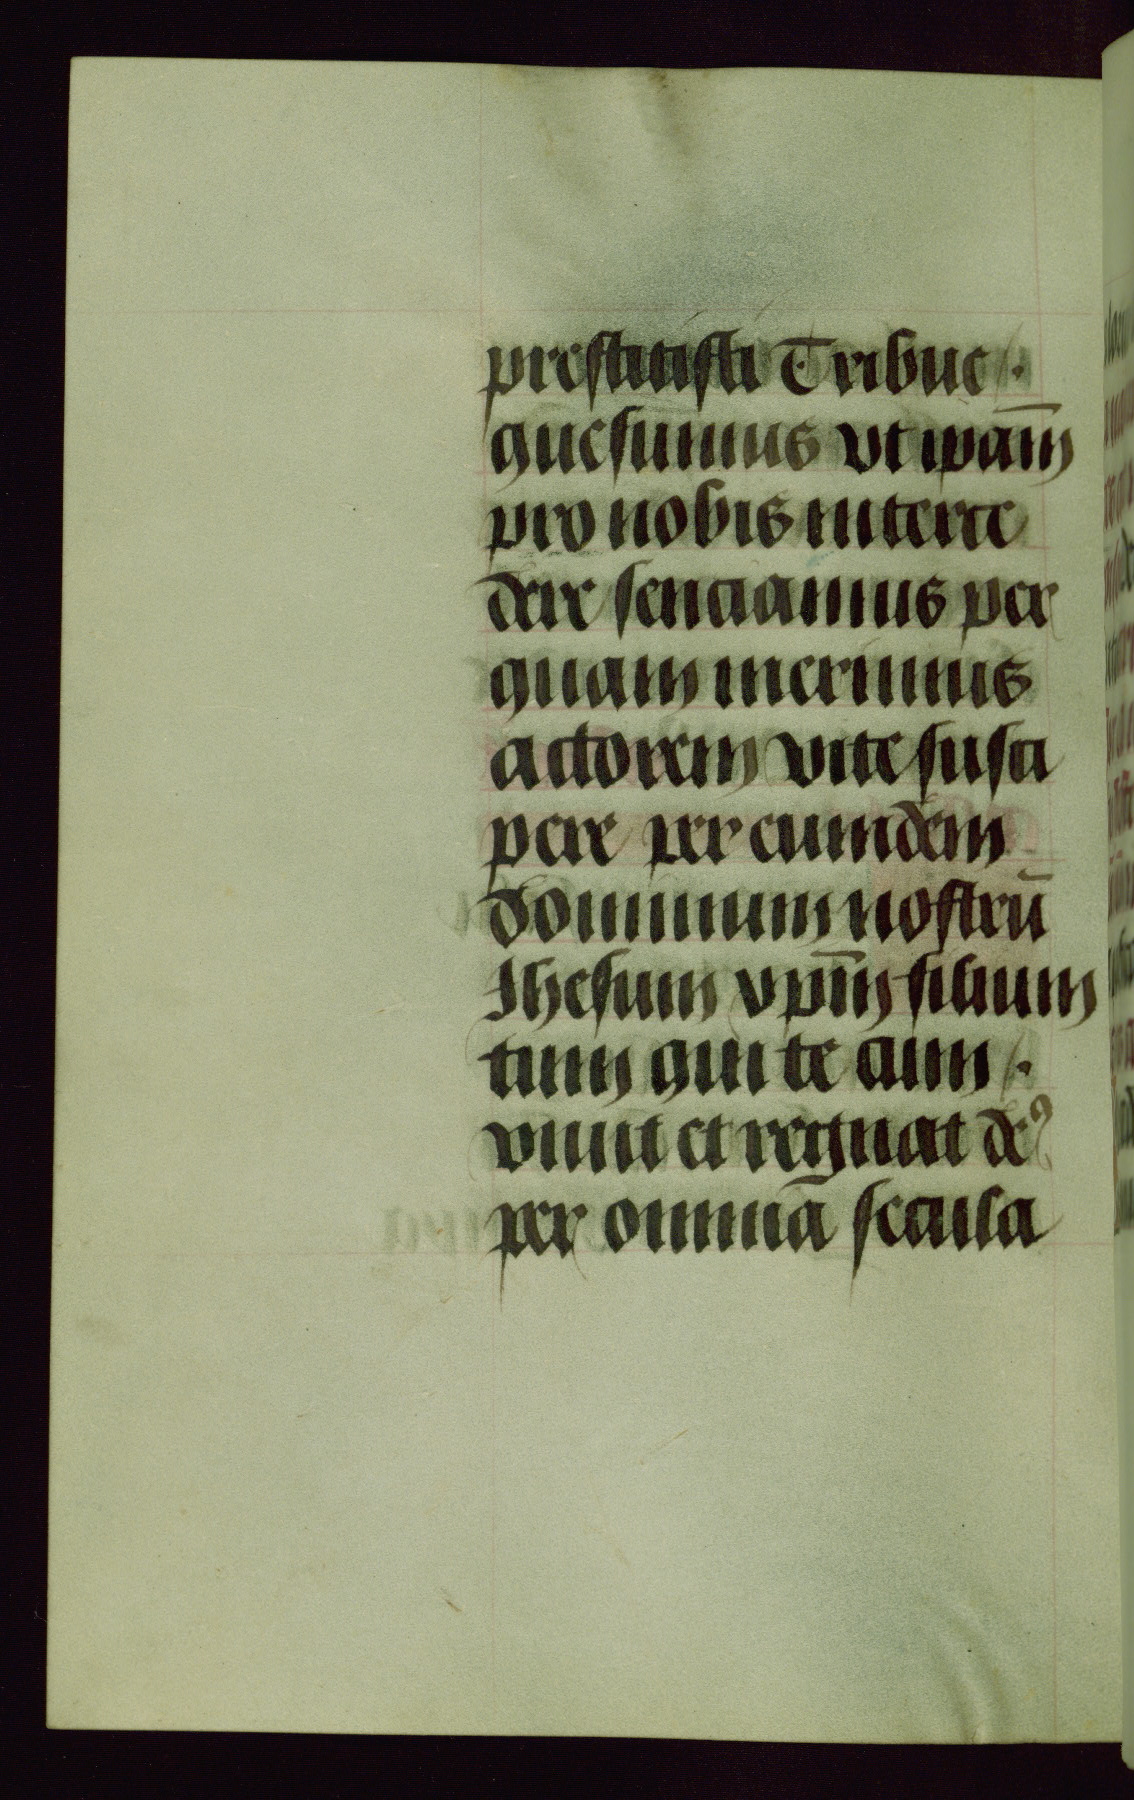 prestitisti Tribue /.
quesumus vt ip̅am
pro nobis interce
dere senciamus per
quam meruimus
actorem vite susci
pere per eumdem
dominum nostrū
Jhesum xp̄m filium
tuum qui te cum /.
viuit et regnat deꝰ
per omnia secula